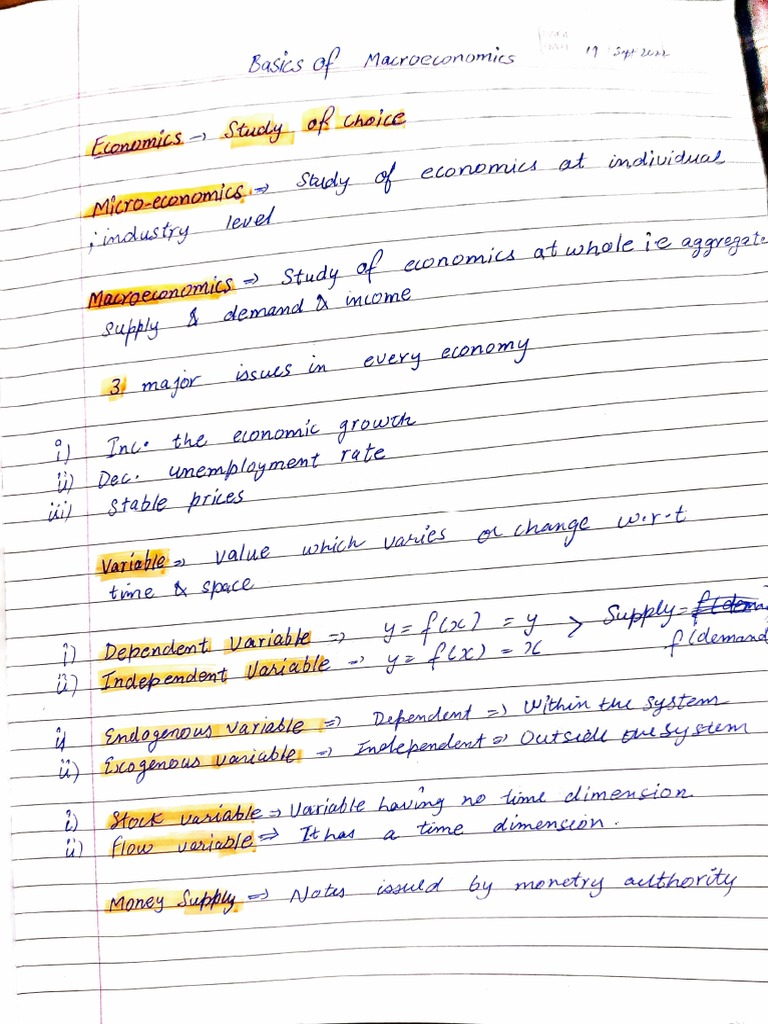 Basics of Macroeconomics 19 Sept 2022
Economics → Study of choice
Micro-economics => Study of economics at individual
; industry level
Macroeconomics => Study of economics at whole i.e aggregate
supply & demand & income
3 major issues in every economy
i) Inc. the economic growth
ii) Dec. unemployment rate
iii) Stable prices
Variable => value which varies or change w.r.t
time & space
i) Dependent variable => y = f(x) = y > Supply = f(dema
ii) Independent variable => y = f(x) = x f(demand
i) Endogenous variable => Dependent => Within the system
ii) Exogenous variable => Independent => Outside the system
i) Stock variable => Variable having no time dimension
ii) flow variable => It has a time dimension.
Money Supply => Notes issued by monetry authority